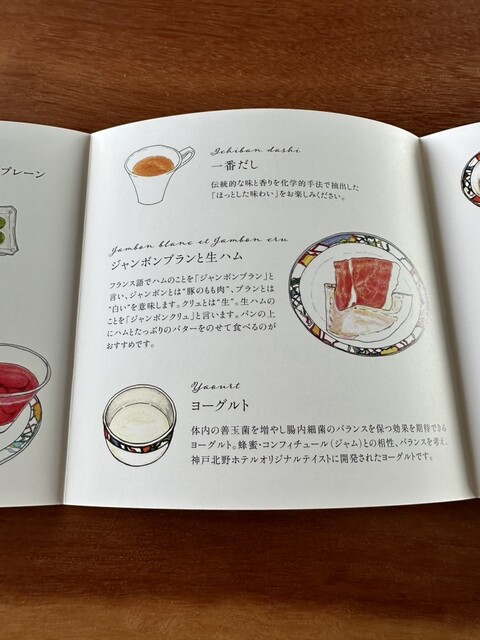 プレーン
Ichiban dashi
一番だし
伝統的な味と香りを化学的手法で抽出した
「ほっとした味わい」をお楽しみください。
Jambon blanc et Jambon cru
ジャンボンブランと生ハム
フランス語でハムのことを「ジャンボンブラン」と
言い、ジャンボンとは“豚のもも肉”、ブランとは
“白い”を意味します。クリュとは“生”。生ハムの
ことを「ジャンボンクリュ」と言います。パンの上
にハムとたっぷりのバターをのせて食べるのが
おすすめです。
Yaourt
ヨーグルト
体内の善玉菌を増やし腸内細菌のバランスを保つ効果を期待できる
ヨーグルト。蜂蜜・コンフィチュール（ジャム）との相性、バランスを考え、
神戸北野ホテルオリジナルテイストに開発されたヨーグルトです。